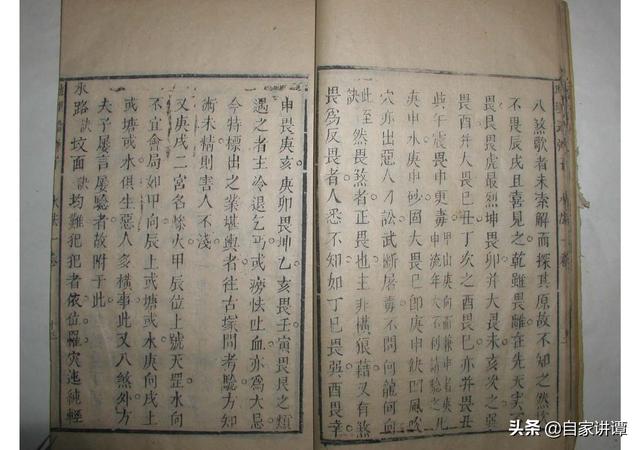 八煞歌者未索解而探其原故不知之然
不畏辰戌且喜見之乾雖畏離在先天
畏艮畏虎最烈坤畏卯幷大畏未亥次之
畏酉幷大畏巳丑丁次之酉畏巳亦幷畏丑
些午震畏申更毒
庚申水庚申砂固大畏巳卽庚申缺凹風吹
穴亦出惡人刁訟武斷屠毒不問向龍何向
此至然畏煞者正畏也主非橫狼藉又有煞
畏爲反畏者人悉不知如丁巳畏
酉畏辛
申畏庚亥庚卯畏坤乙亥畏壬寅畏艮之類
遇之者主冷退乞丐或癆怯吐血亦爲大忌
今特標出之業堪輿者往古塚間考驗方知
術未精則害人不淺
又庚戌二宮名慘火甲辰位上號天罡水向
不宜禽局如甲向辰上或塘或水庚向戌上
或塘或水俱生惡人多橫事此又八煞外方
夫子屢言屢驗者故附于此
水路訣坟面訣均難犯犯者依位罹灾迍純輕
头条 @自家讲谭